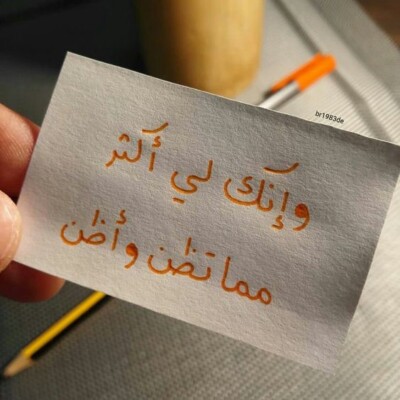 br1983de
وإنك لي أكثر
مما تظن وأظن